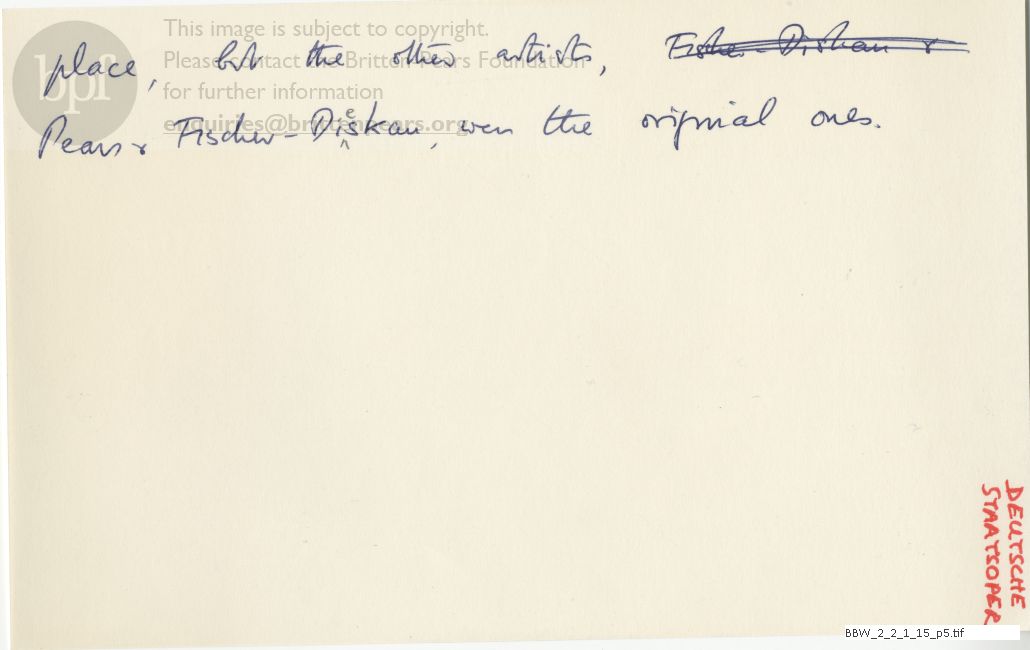 This image is subject to copyright.
Please contact the Britten-Pears Foundation
for further information
enquiries@brittenpears.org
bpf
place, but the other artists, Fisher-Diskau &
Pears & Fischer-Dieskau, were the original ones.
DEUTSCHE
STAATSOPER
BBW_2_2_1_15_p5.tif